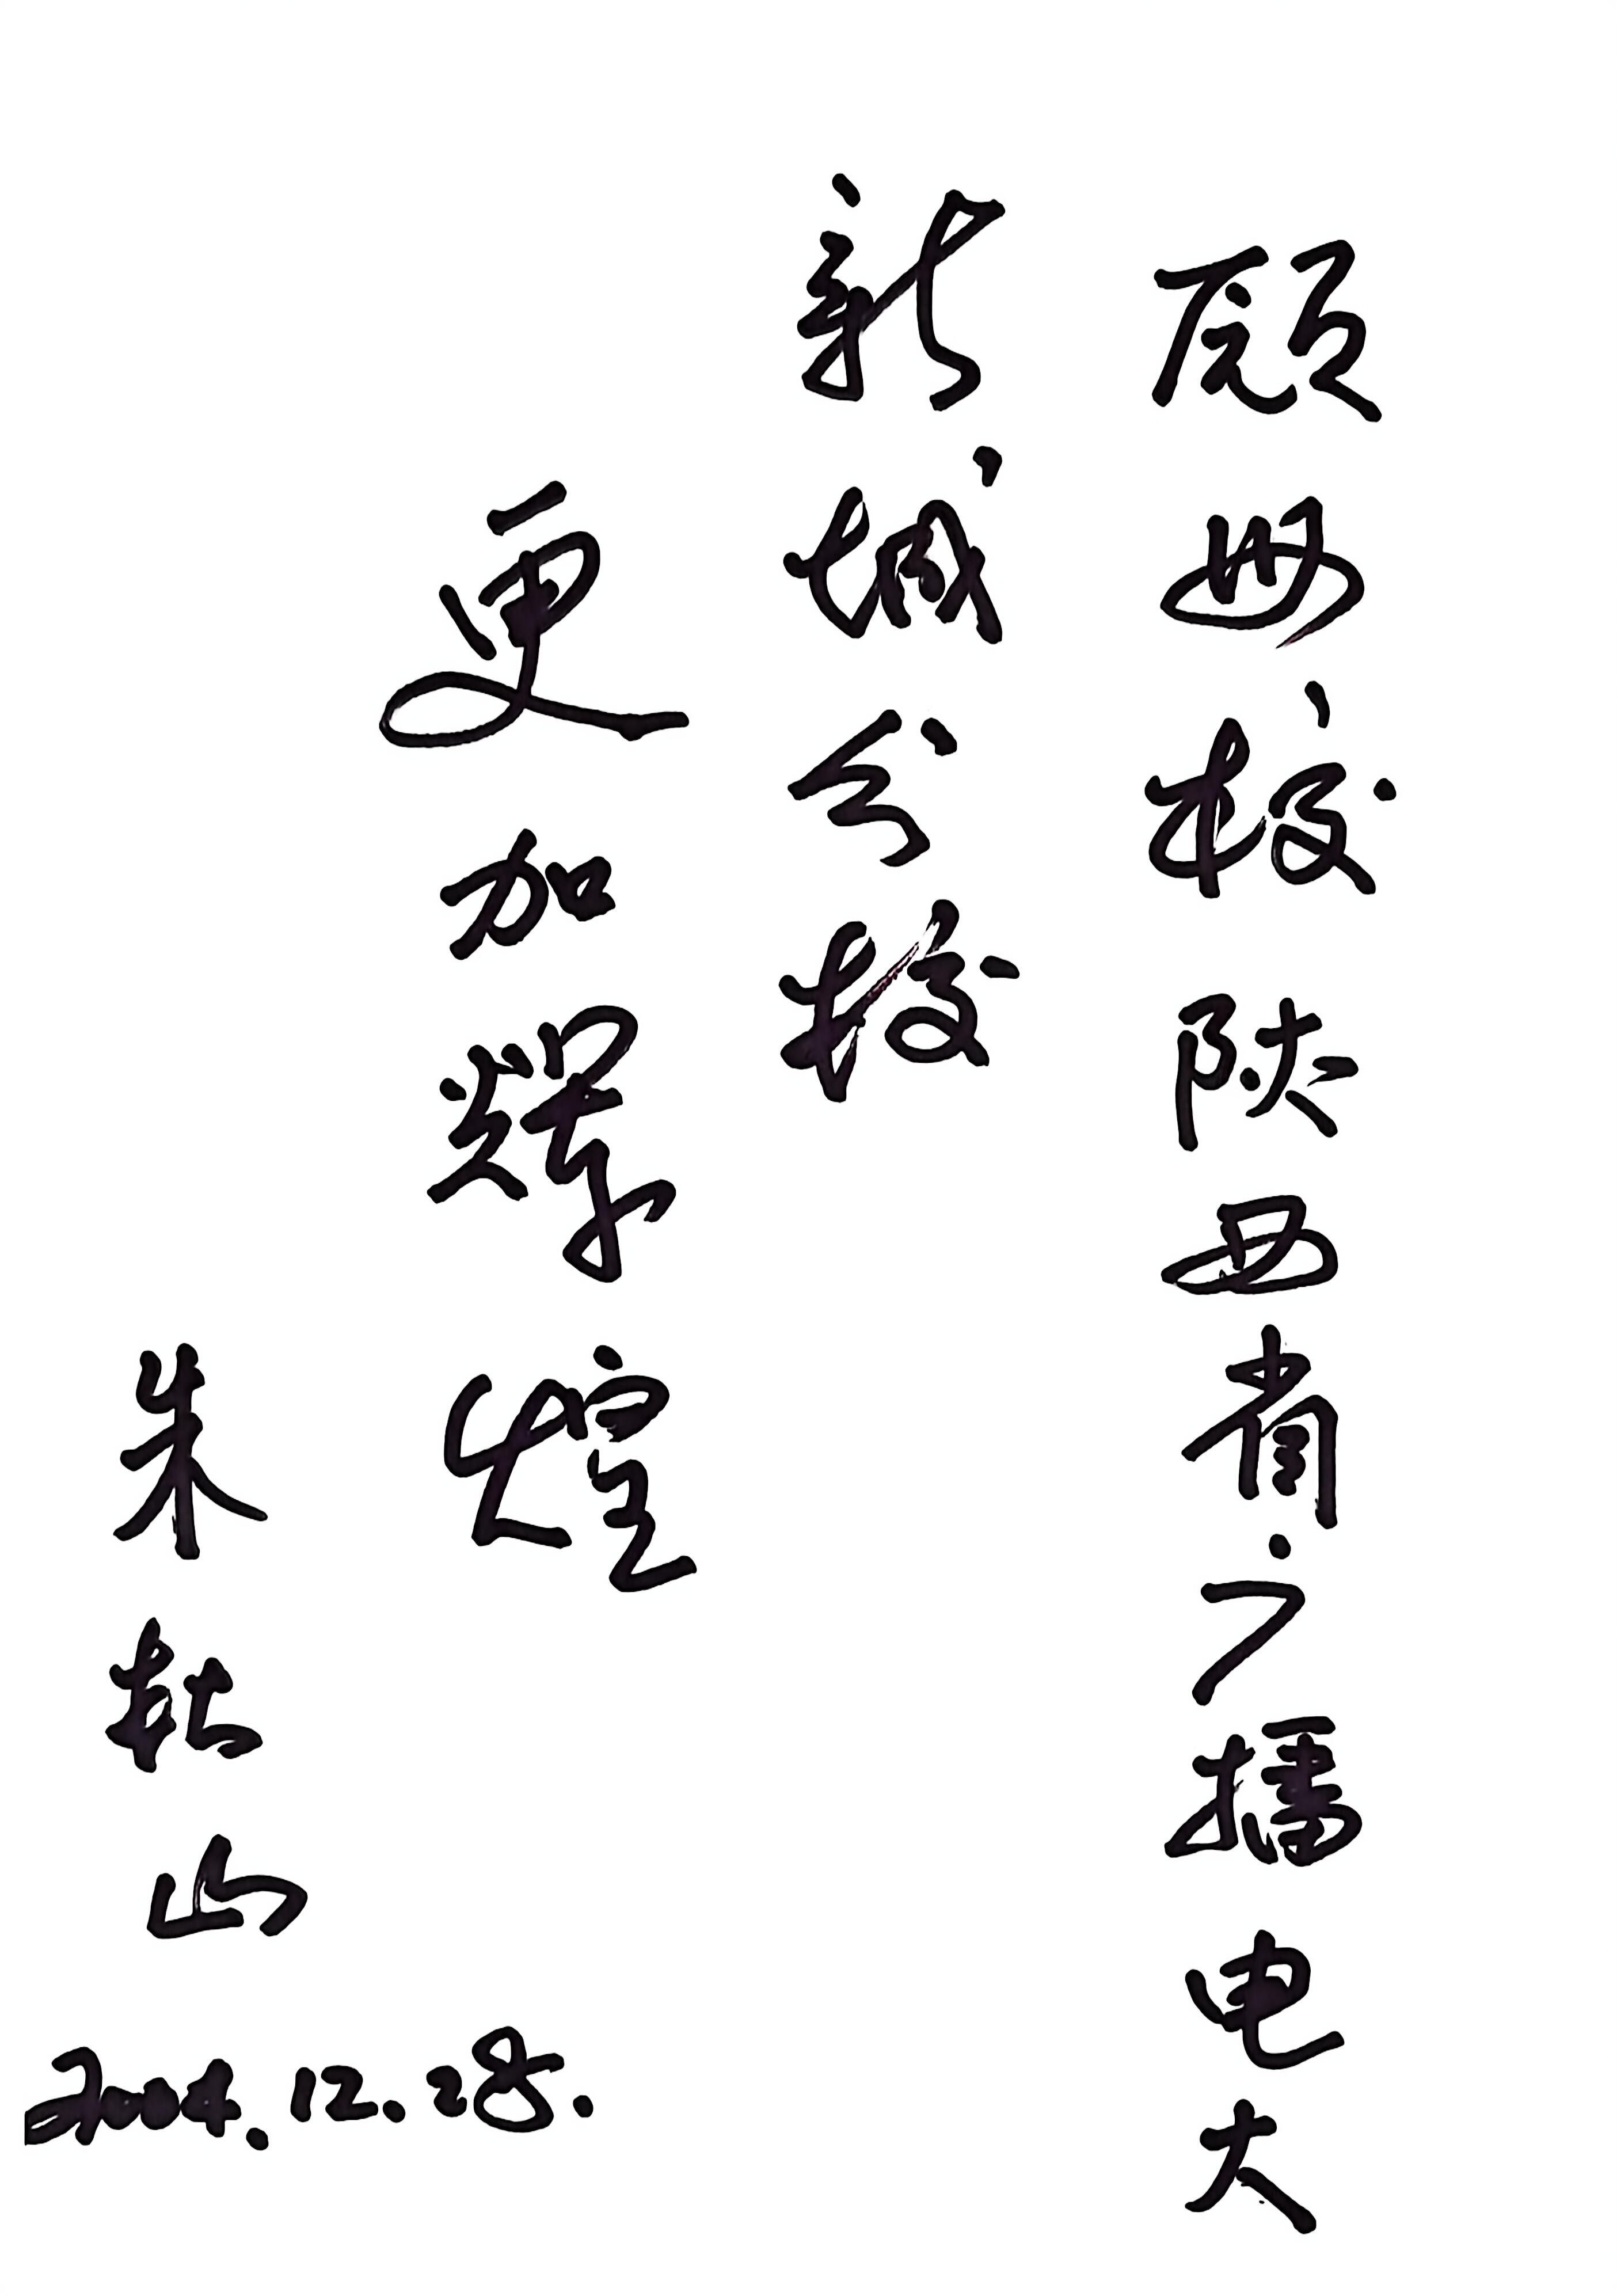 愿母校陕西省广播电大
新城分校
更加辉煌
朱松山
2004.12.28.